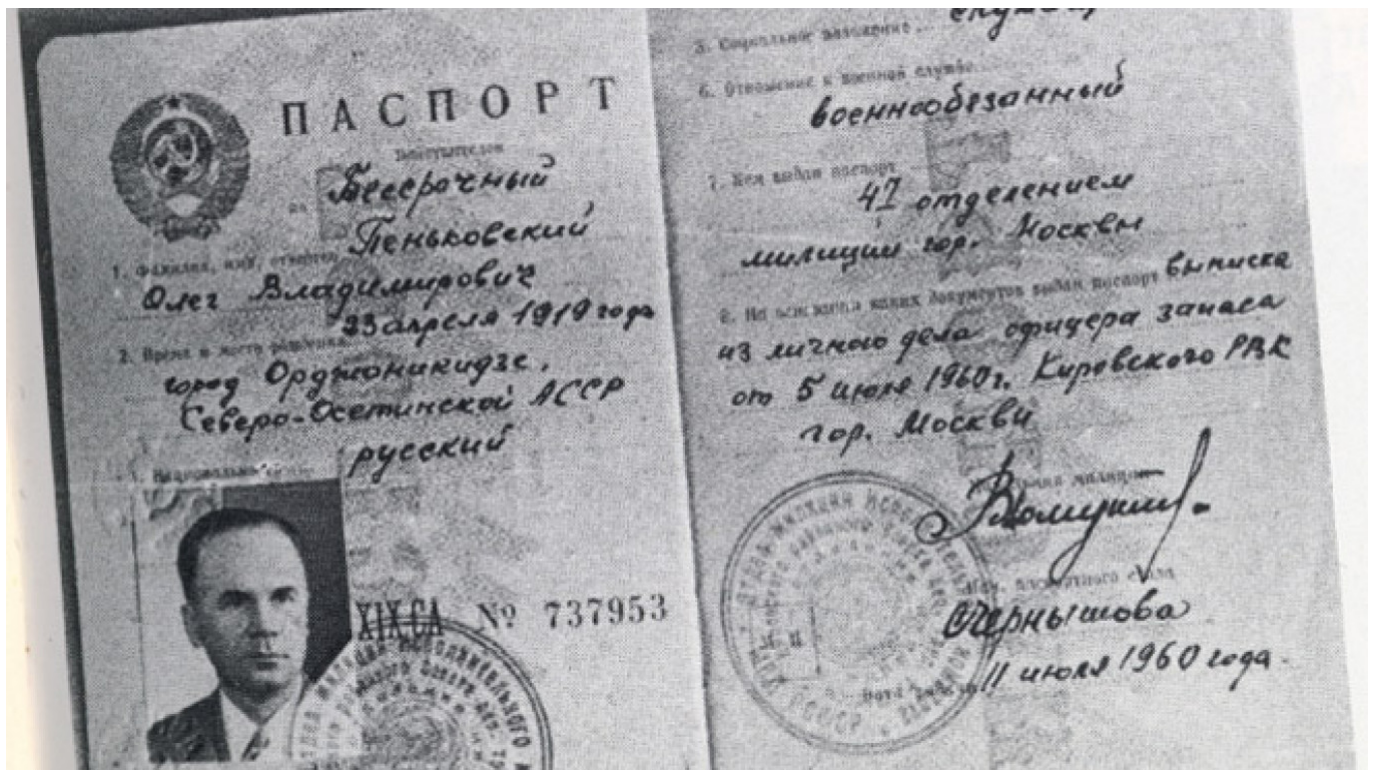 ПАСПОРТ
Бессрочный
1. Фамилия, имя, отчество Пеньковский
Олег Владимирович
2. Время и место рождения 23 апреля 1919 года
город Орджоникидзе,
Северо-Осетинской АССР
3. Национальность русский
XIX-СА № 737953
5. Социальное положение
6. Отношение к военной службе
военнообязанный
7. Кем выдан паспорт
41 отделением
милиции гор. Москвы
8. На основании каких документов выдан паспорт выписка
из личного дела офицера запаса
от 5 июля 1960 г. Кировского РВК
гор. Москвы
Чернышова
11 июля 1960 года.